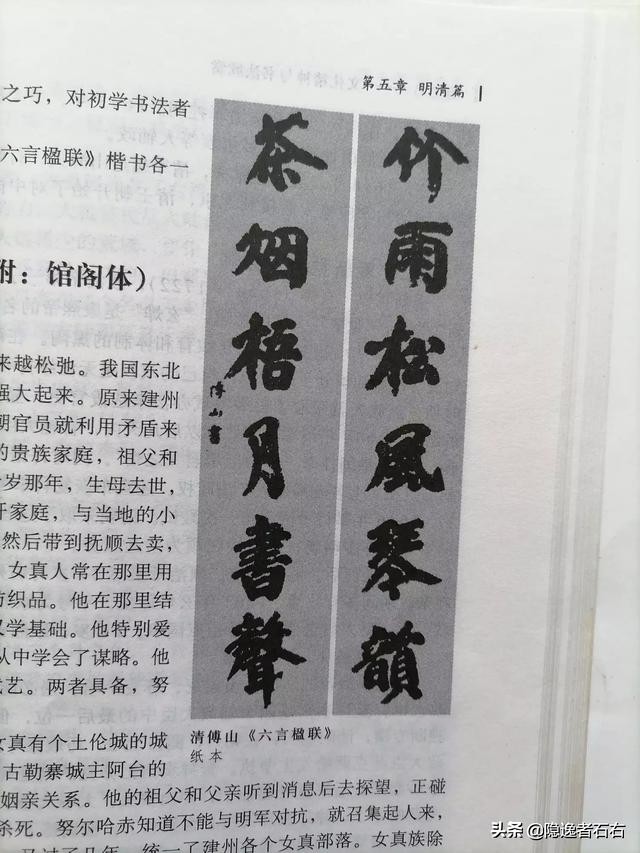 第五章 明清篇
之巧，对初学书法者
六言楹联》楷书各一
附：馆阁体）
来越松弛。我国东北
强大起来。原来建州
朝官员就利用矛盾来
的贵族家庭，祖父和
岁那年，生母去世，
开家庭，与当地的小
然后带到抚顺去卖，
女真人常在那里用
纺织品。他在那里结
汉学基础。他特别爱
从中学会了谋略。他
武艺。两者具备，努
女真有个土伦城的城
古勒寨城主阿台的
姻亲关系。他的祖父和父亲听到消息后去探望，正碰
杀死。努尔哈赤知道不能与明军对抗，就召集起人来，
又过了几年，统一了建州各个女真部落。女真族除
竹雨松风琴韵
茶烟梧月書聲
傅山書
清傅山《六言楹联》
纸本
头条 @隐逸者石右